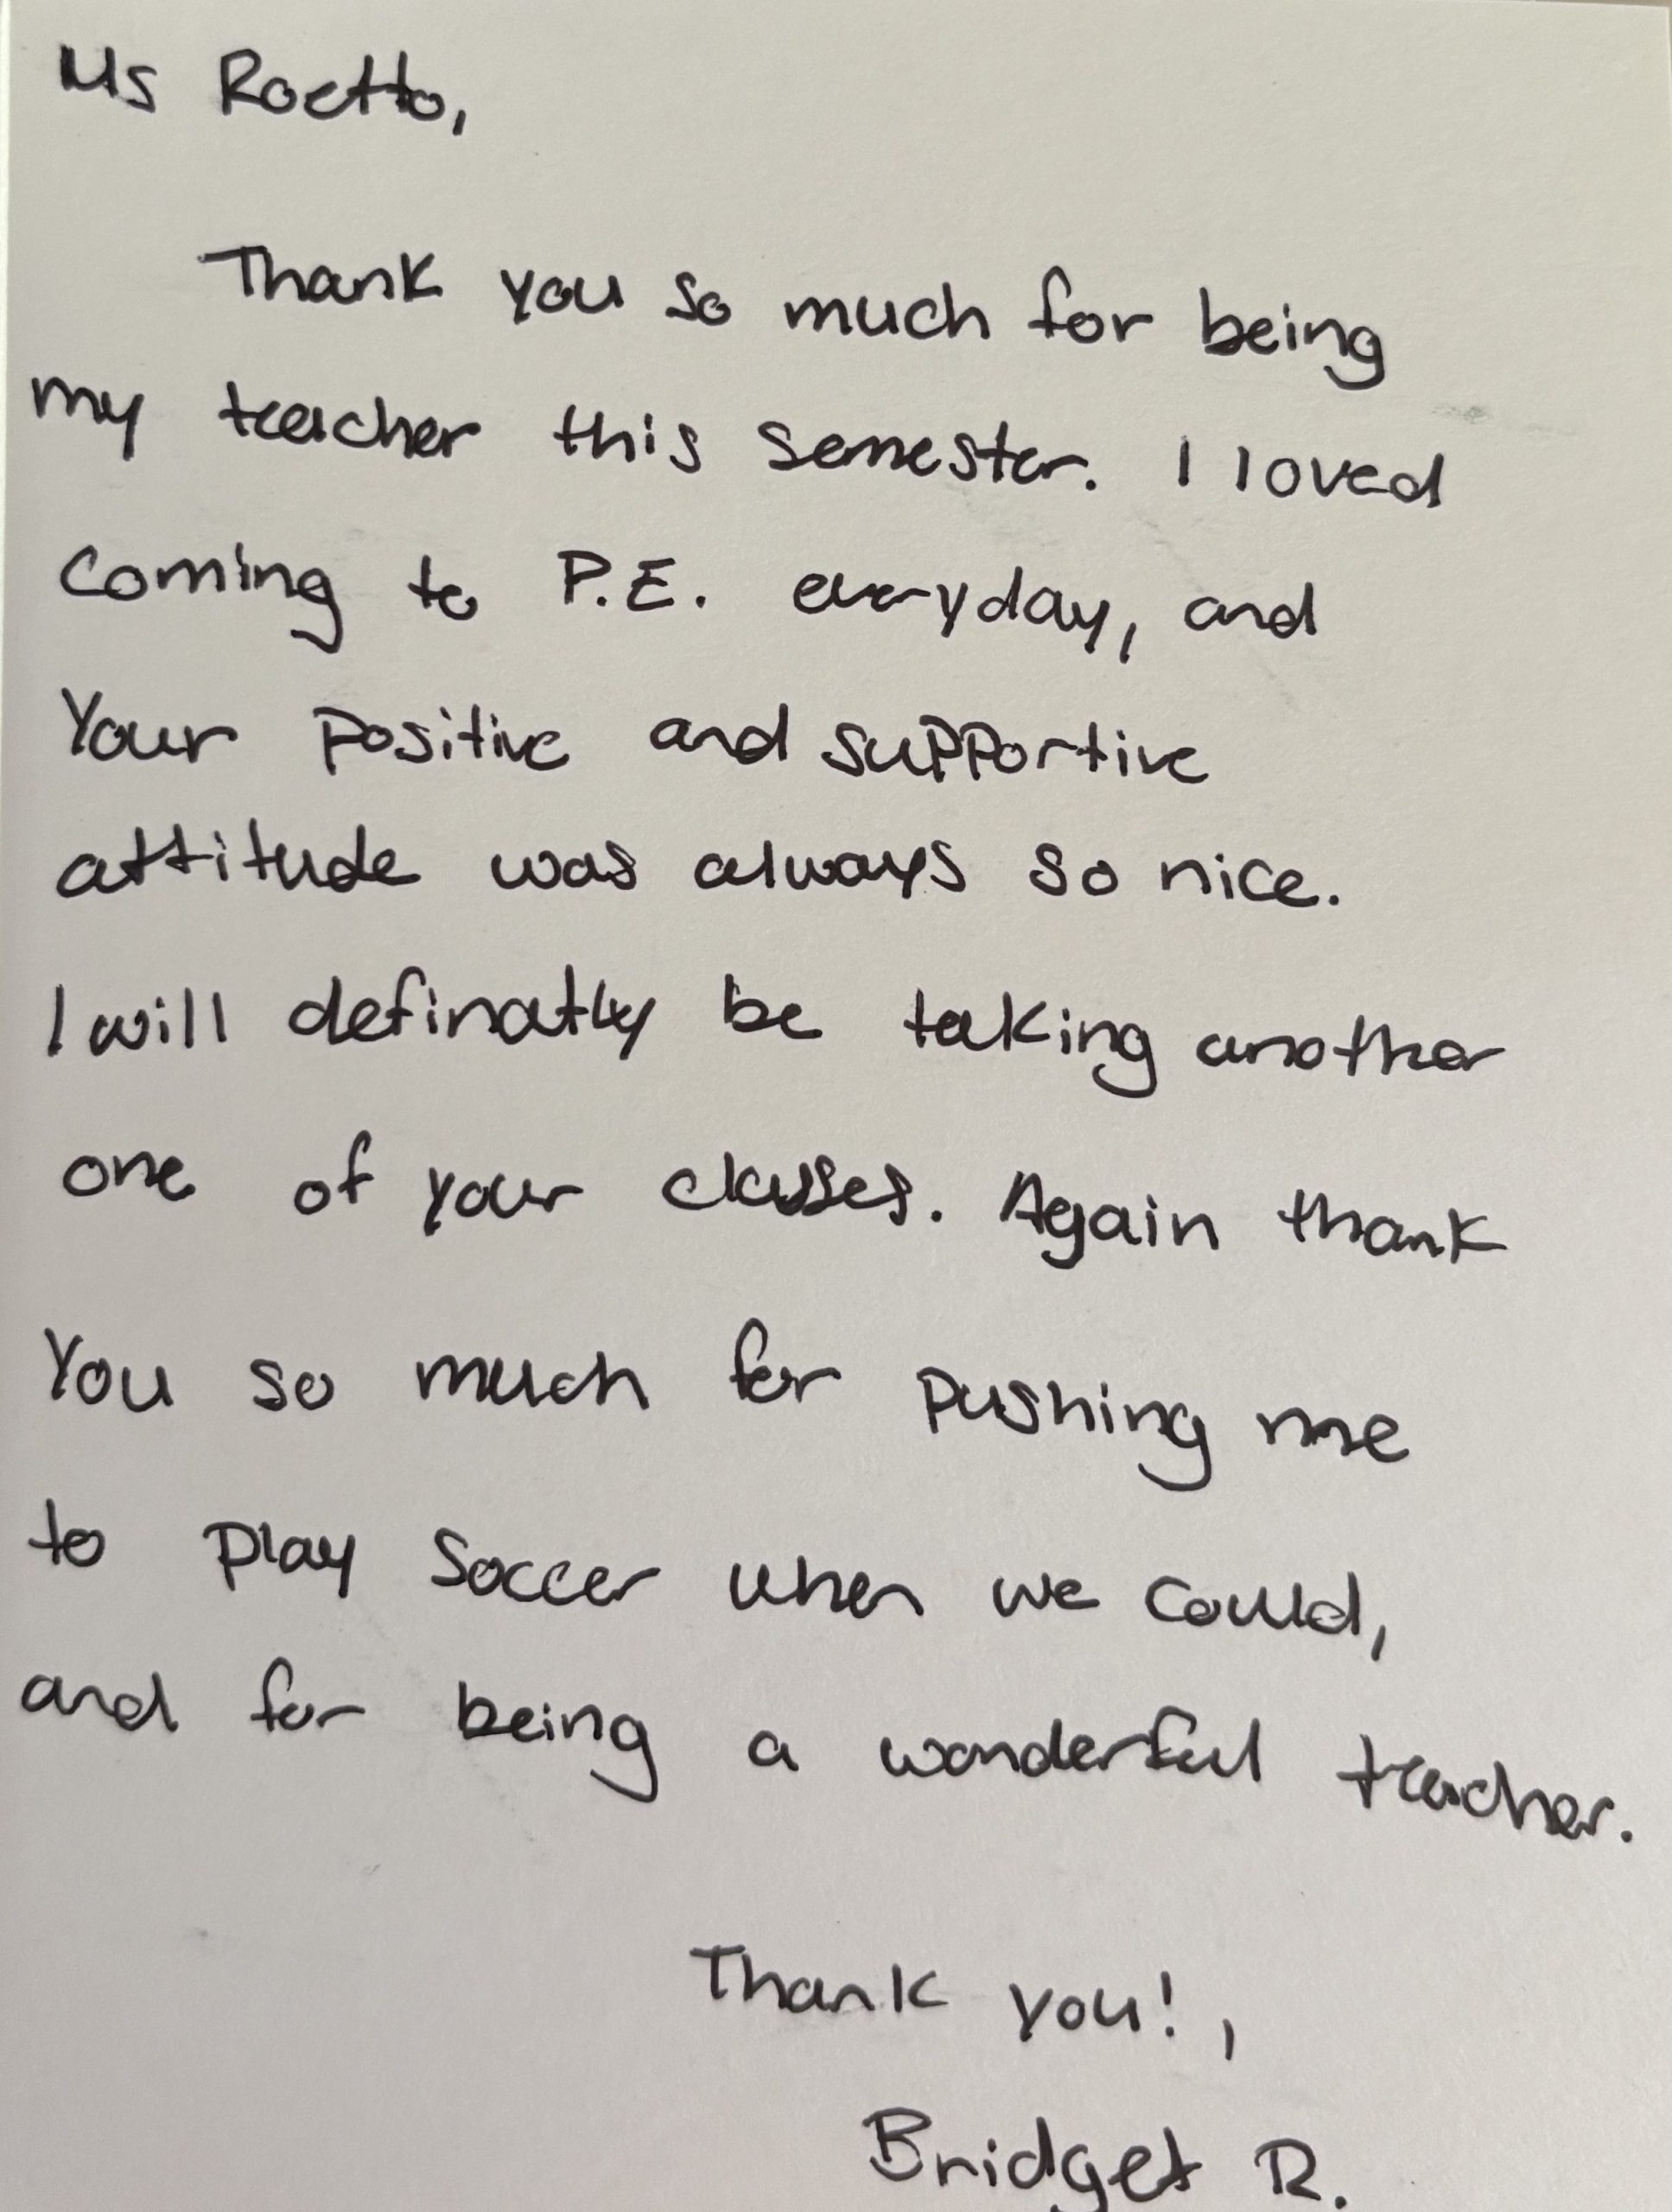 Ms Roetto,
Thank you so much for being
my teacher this semester. I loved
coming to P.E. everyday, and
Your positive and supportive
attitude was always so nice.
I will definatly be taking another
one of your classes. Again thank
You so much for pushing me
to play soccer when we could,
and for being a wonderful teacher.
Thank you!,
Bridget R.